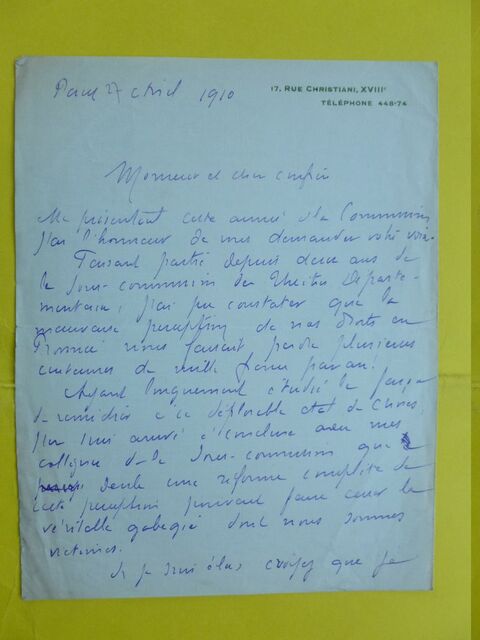 Paris 27 Avril 1910
17, RUE CHRISTIANI, XVIIIᵉ
TÉLÉPHONE 448-74
Monsieur et cher confrère
Me présentant cette année à la Commission
j'ai l'honneur de vous demander votre voix.
Faisant partie depuis deux ans de
la Sous-commission des Théâtres Départe-
mentaux, j'ai pu constater que la
mauvaise perception de nos droits en
Province nous faisait perdre plusieurs
centaines de mille francs par an!
Ayant longuement étudié la façon
de remédier à ce déplorable état de choses,
j'en suis arrivé à conclure avec mes
collègues de la Sous-commission que
seule une réforme complète de
cette perception pouvait faire cesser la
véritable gabegie dont nous sommes
victimes.
Si je suis élu, croyez que je